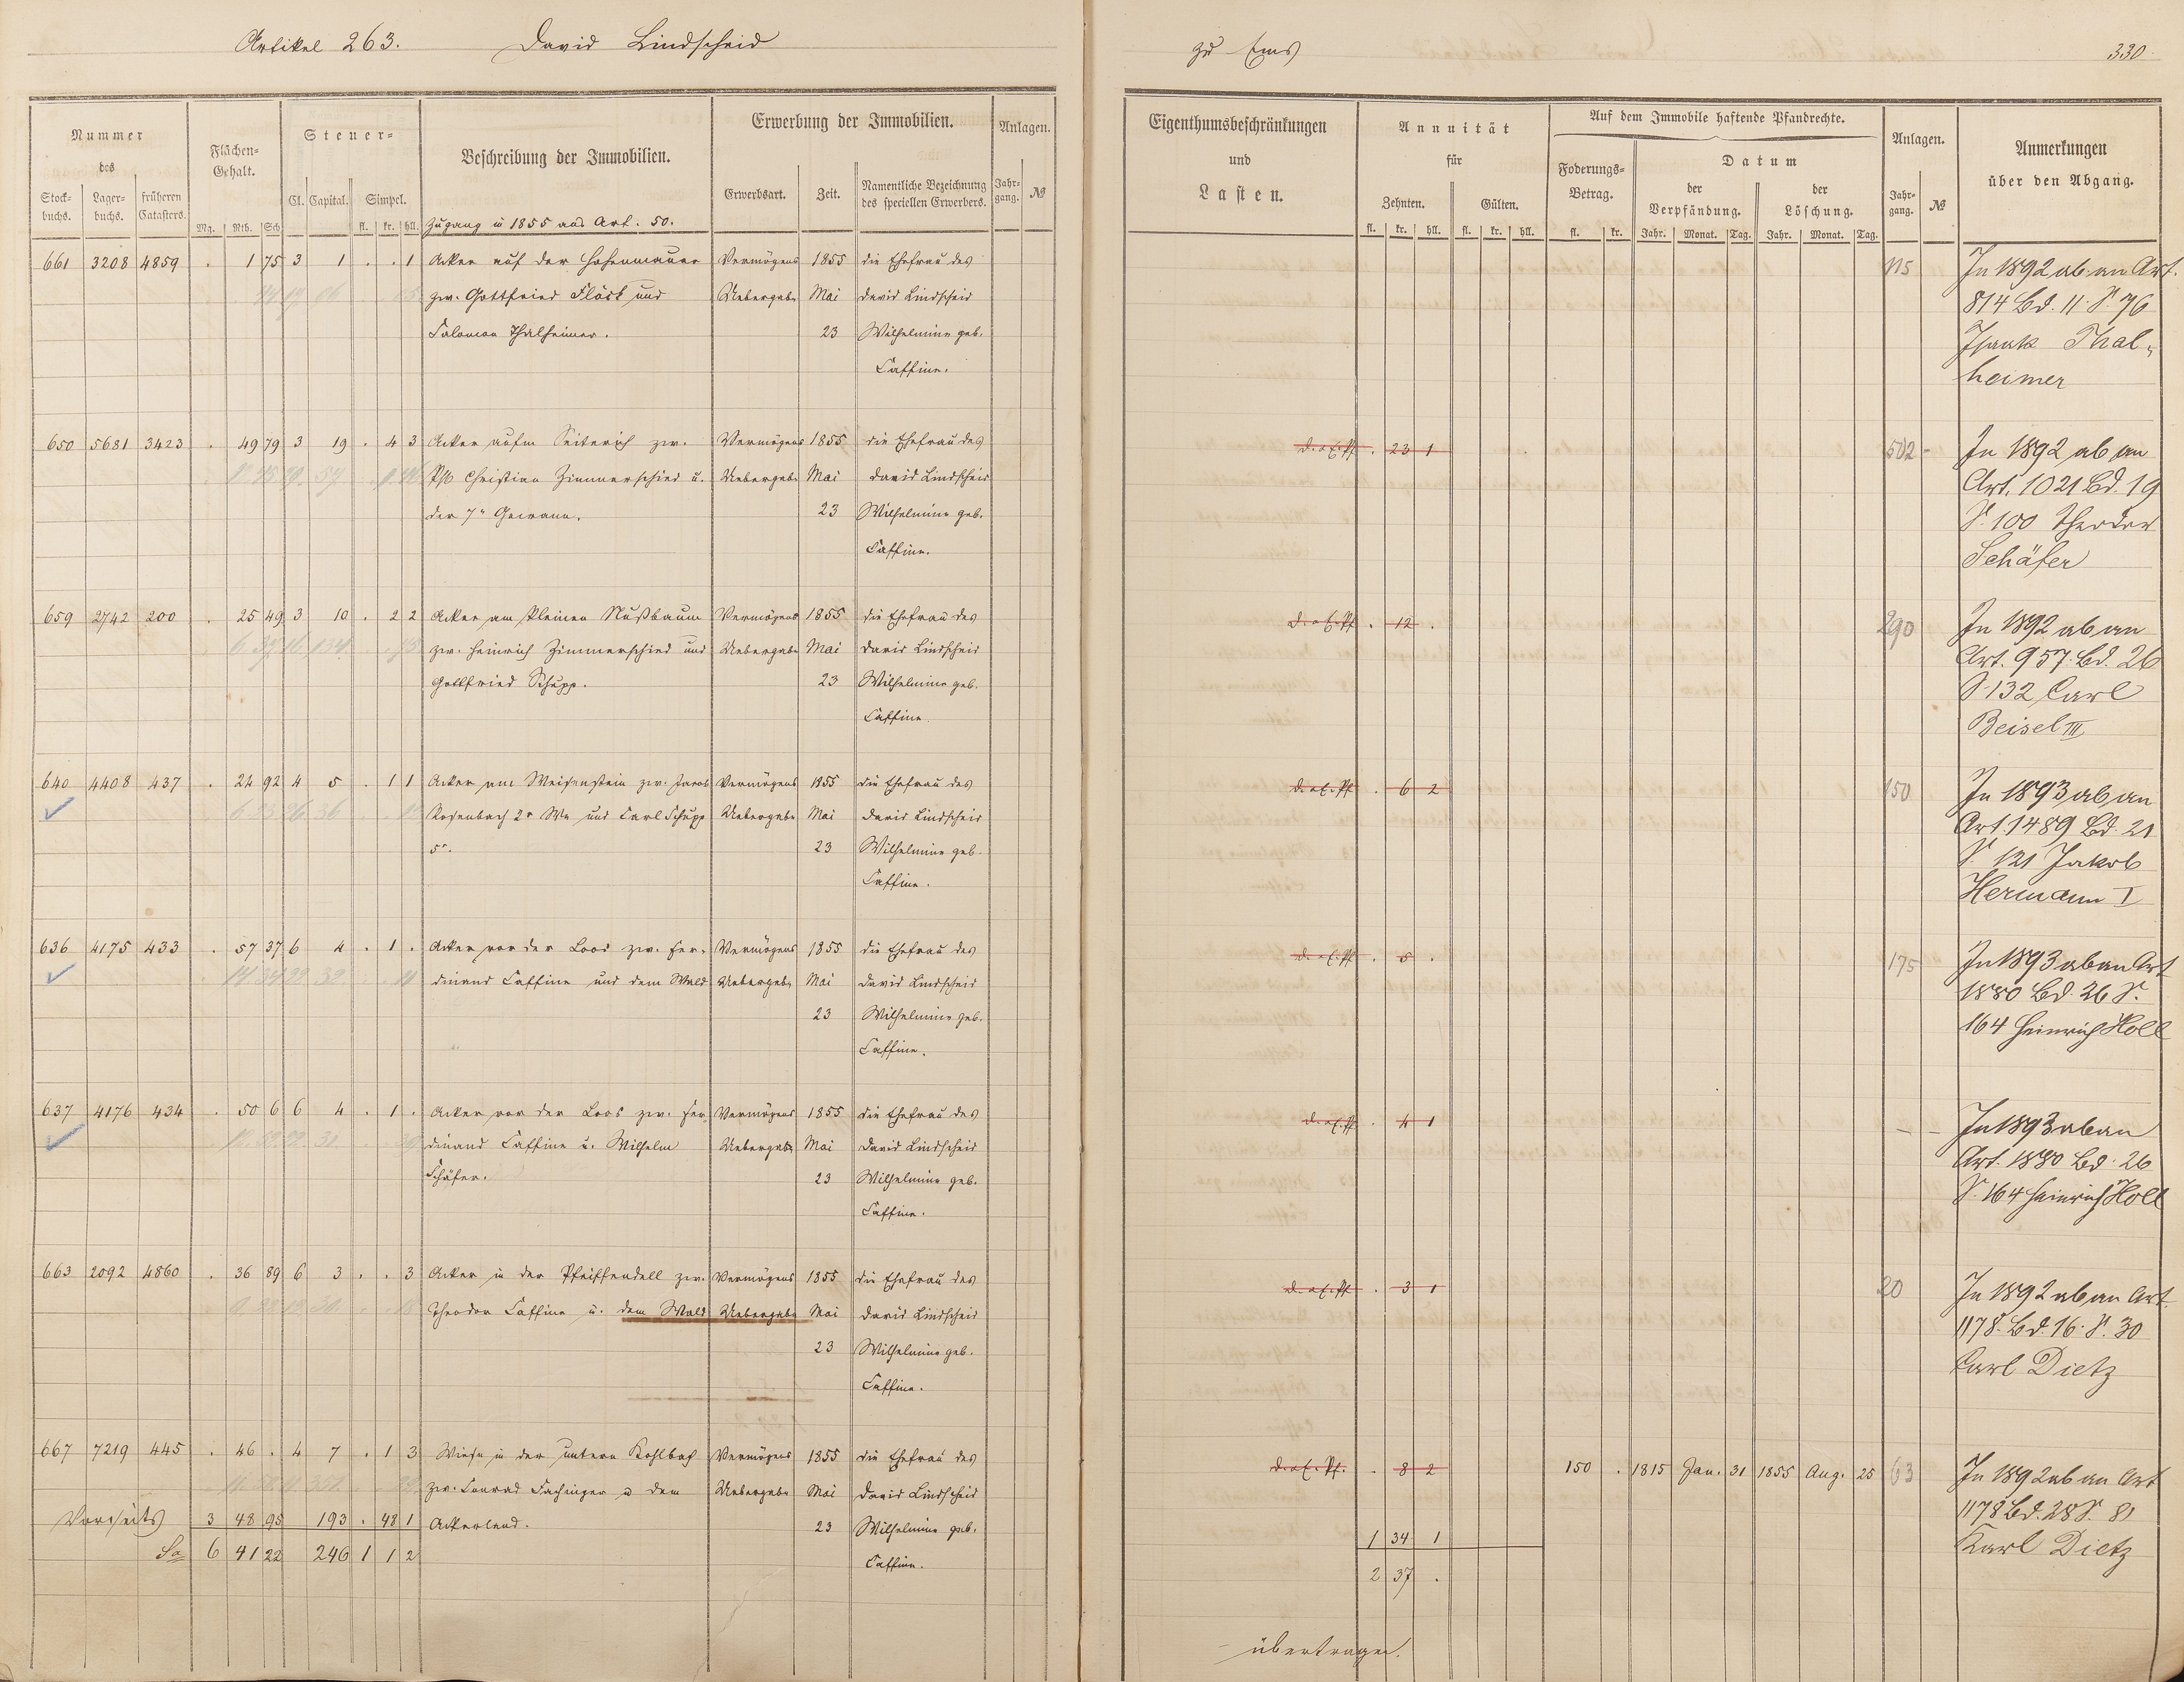 Artikel 263. David Lindscheid
zu Ems 330
Nummer
des
Stock-
buchs.
Lager-
buchs.
früheren
Catasters.
Flächen-
Gehalt.
Mg. Rth. Sch
Steuer-
Cl. Capital. Simpel.
fl. kr. hll.
Beschreibung der Immobilien.
Zugang in 1855 aus Art. 50.
Erwerbung der Immobilien.
Erwerbsart. Zeit.
Namentliche Bezeichnung
des speciellen Erwerbers.
Anlagen.
Jahr-
gang. №
Eigenthumsbeschränkungen
und
Lasten.
Annuität
für
Zehnten. Gülten.
fl. kr. hll. fl. kr. hll.
Auf dem Immobile haftende Pfandrechte.
Foderungs-
Betrag.
fl. kr.
Datum
der
Verpfändung.
der
Löschung.
Jahr. Monat. Tag. Jahr. Monat. Tag.
Anlagen.
Jahr-
gang. №
Anmerkungen
über den Abgang.
661 3208 4859 . 1 75 3 1 . . 1 Acker auf der Hohenmauer Vermögens 1855 die Ehefrau des
zw. Gottfried Flöck und Uebergabe Mai David Lindscheid
Salomon Thalheimer. 23 Wilhelmine geb.
Caffine.
115 In 1892 ab an Art.
814 Bd. 11 S. 76
Isaak Thal-
heimer
650 5681 3423 . 49 79 3 19 . 4 3 Acker aufm Seiterich zw. Vermögens 1855 die Ehefrau des
Ph. Christian Zimmerschied u. Uebergabe Mai David Lindscheid
der 7n Gewann. 23 Wilhelmine geb.
Caffine.
d. a. E. Pf. . 23 1
502 - In 1892 ab an
Art. 1021 Bd. 19
S. 100 Theodor
Schäfer
659 2742 200 . 25 49 3 10 . 2 2 Acker am kleinen Nußbaum Vermögens 1855 die Ehefrau des
zw. Heinrich Zimmerschied und Uebergabe Mai David Lindscheid
Gottfried Schupp. 23 Wilhelmine geb.
Caffine.
d. a. E. Pf. . 12 .
290 In 1892 ab an
Art. 957 Bd. 26
S. 132 Carl
Beisel III
640 4408 437 . 24 92 4 5 . 1 1 Acker am Weisenstein zw. Jacob Vermögens 1855 die Ehefrau des
Rosenbach 2r We und Carl Schupp Uebergabe Mai David Lindscheid
5r. 23 Wilhelmine geb.
Caffine.
d. a. E. Pf. . 6 2
150 In 1893 ab an
Art. 1489 Bd. 21
S. 121 Jakob
Hermann I
636 4175 433 . 57 37 6 4 . 1 . Acker vor der Loos zw. Fer- Vermögens 1855 die Ehefrau des
dinand Caffine und dem Wald Uebergabe Mai David Lindscheid
23 Wilhelmine geb.
Caffine.
d. a. E. Pf. . 5 .
175 In 1893 ab an Art
1880 Bd. 26 S.
164 Heinrich Holl
637 4176 434 . 50 6 6 4 . 1 . Acker vor der Loos zw. Fer- Vermögens 1855 die Ehefrau des
dinand Caffine u. Wilhelm Uebergabe Mai David Lindscheid
Schäfer. 23 Wilhelmine geb.
Caffine.
d. a. E. Pf. . 4 1
- - In 1893 ab an
Art. 1880 Bd. 26
S. 164 Heinrich Holl
663 2092 4860 . 36 89 6 3 . . 3 Acker in der Pfeiffendell zw. Vermögens 1855 die Ehefrau des
Theodor Caffine u. dem Wald Uebergabe Mai David Lindscheid
23 Wilhelmine geb.
Caffine.
d. a. E. Pf. . 3 1
20 In 1892 ab an Art.
1178. Bd. 16. S. 30
Carl Dietz
667 7219 445 . 46 . 4 7 . 1 3 Wiese in der untern Kohlbach Vermögens 1855 die Ehefrau des
zw. Conrad Fachinger u dem Uebergabe Mai David Lindscheid
Ackerland. 23 Wilhelmine geb.
Caffine.
d. a. E. Pf. . 8 2 150 . 1815 Jan. 31 1855 Aug. 25
63 In 1892 ab an Art
1178 Bd. 28 S. 81
Karl Dietz
Vorseits 3 48 95 193 . 48 1
1 34 1
Sa 6 41 22 246 1 1 2
2 37 .
übertragen.